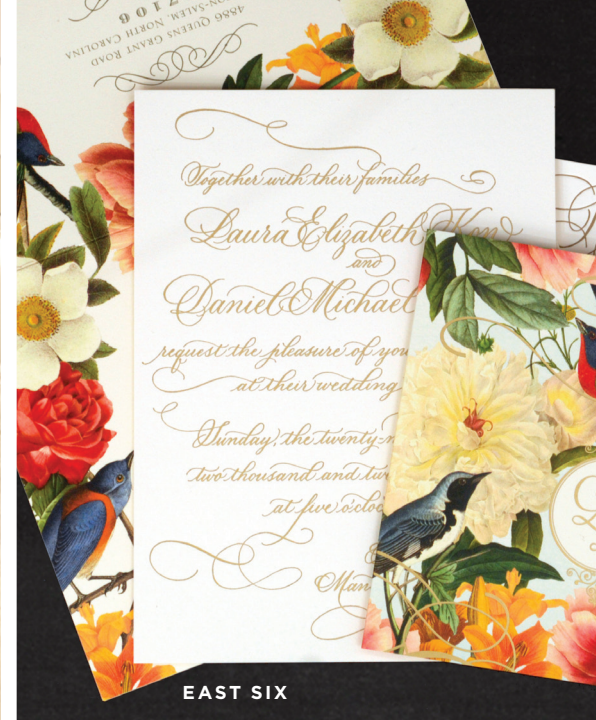 4886 Queens Grant Road
-Salem, North Carolina
7106
Together with their families
Laura Elizabeth
and
Daniel Michael
request the pleasure of you
at their wedding
Sunday, the twenty-n
two thousand and tw
at five o'cloc
Man
EAST SIX